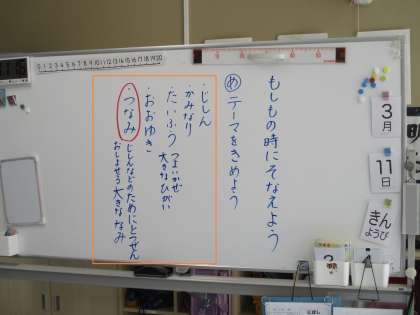 0 1 2 3 4 5 6 7 8 9 10 11 12 13 14 15 16 17 18 19 20
もしもの時にそなえよう
め テーマをきめよう
・じしん
・かみなり
・たいふう つよいかぜ
大きなひがい
・おおゆき
・つなみ じしんなどのためにとつぜん
おしよせる大きななみ
3
月
11
日
きん
ようび